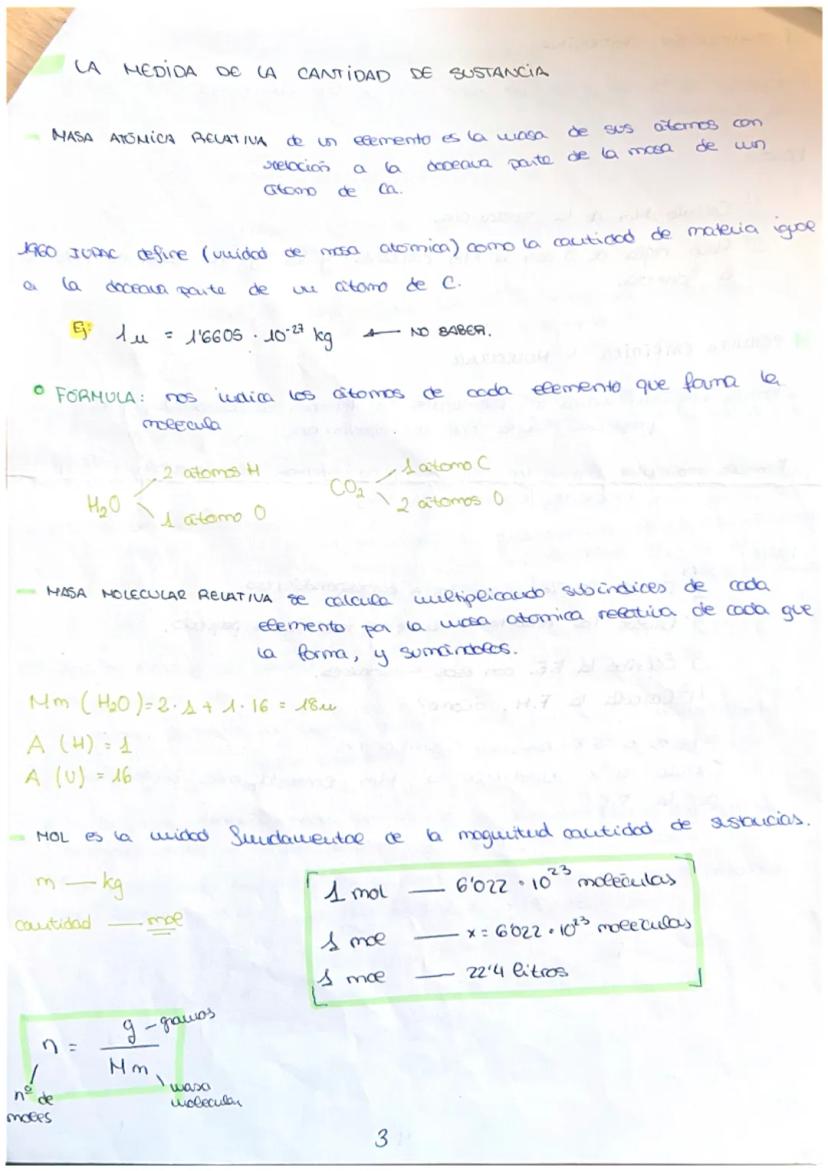 LA MEDIDA DE LA CANTIDAD DE SUSTANCIA
MASA ATÓMICA RELATIVA de un elemento es la masa de sus átomos con
relación a la doceava parte de la masa de un
átomo de Ca.
1960 IUPAC define (unidad de masa atómica) como la cantidad de materia igual
a la doceava parte de un átomo de C.
Ej: 1u = 1'6605 · 10⁻²⁷ kg ← NO SABER.
FÓRMULA: nos indica los átomos de cada elemento que forma la
molécula
H₂O 2 átomos H
1 átomo O
CO₂ 1 átomo C
2 átomos O
MASA MOLECULAR RELATIVA se calcula multiplicando subíndices de cada
elemento por la masa atomica relativa de cada que
la forma, y sumándolos.
Mm (H₂O) = 2 · 1 + 1 · 16 = 18u
A (H) = 1
A (O) = 16
MOL es la unidad fundamental de la magnitud cantidad de sustancias.
m — kg
cantidad — mol
1 mol — 6'022 · 10²³ moléculas
1 mol — x = 6'022 · 10²³ moléculas
1 mol — 22'4 litros
n = g - gramos
Mm
nº de
moles
masa
molecular
3